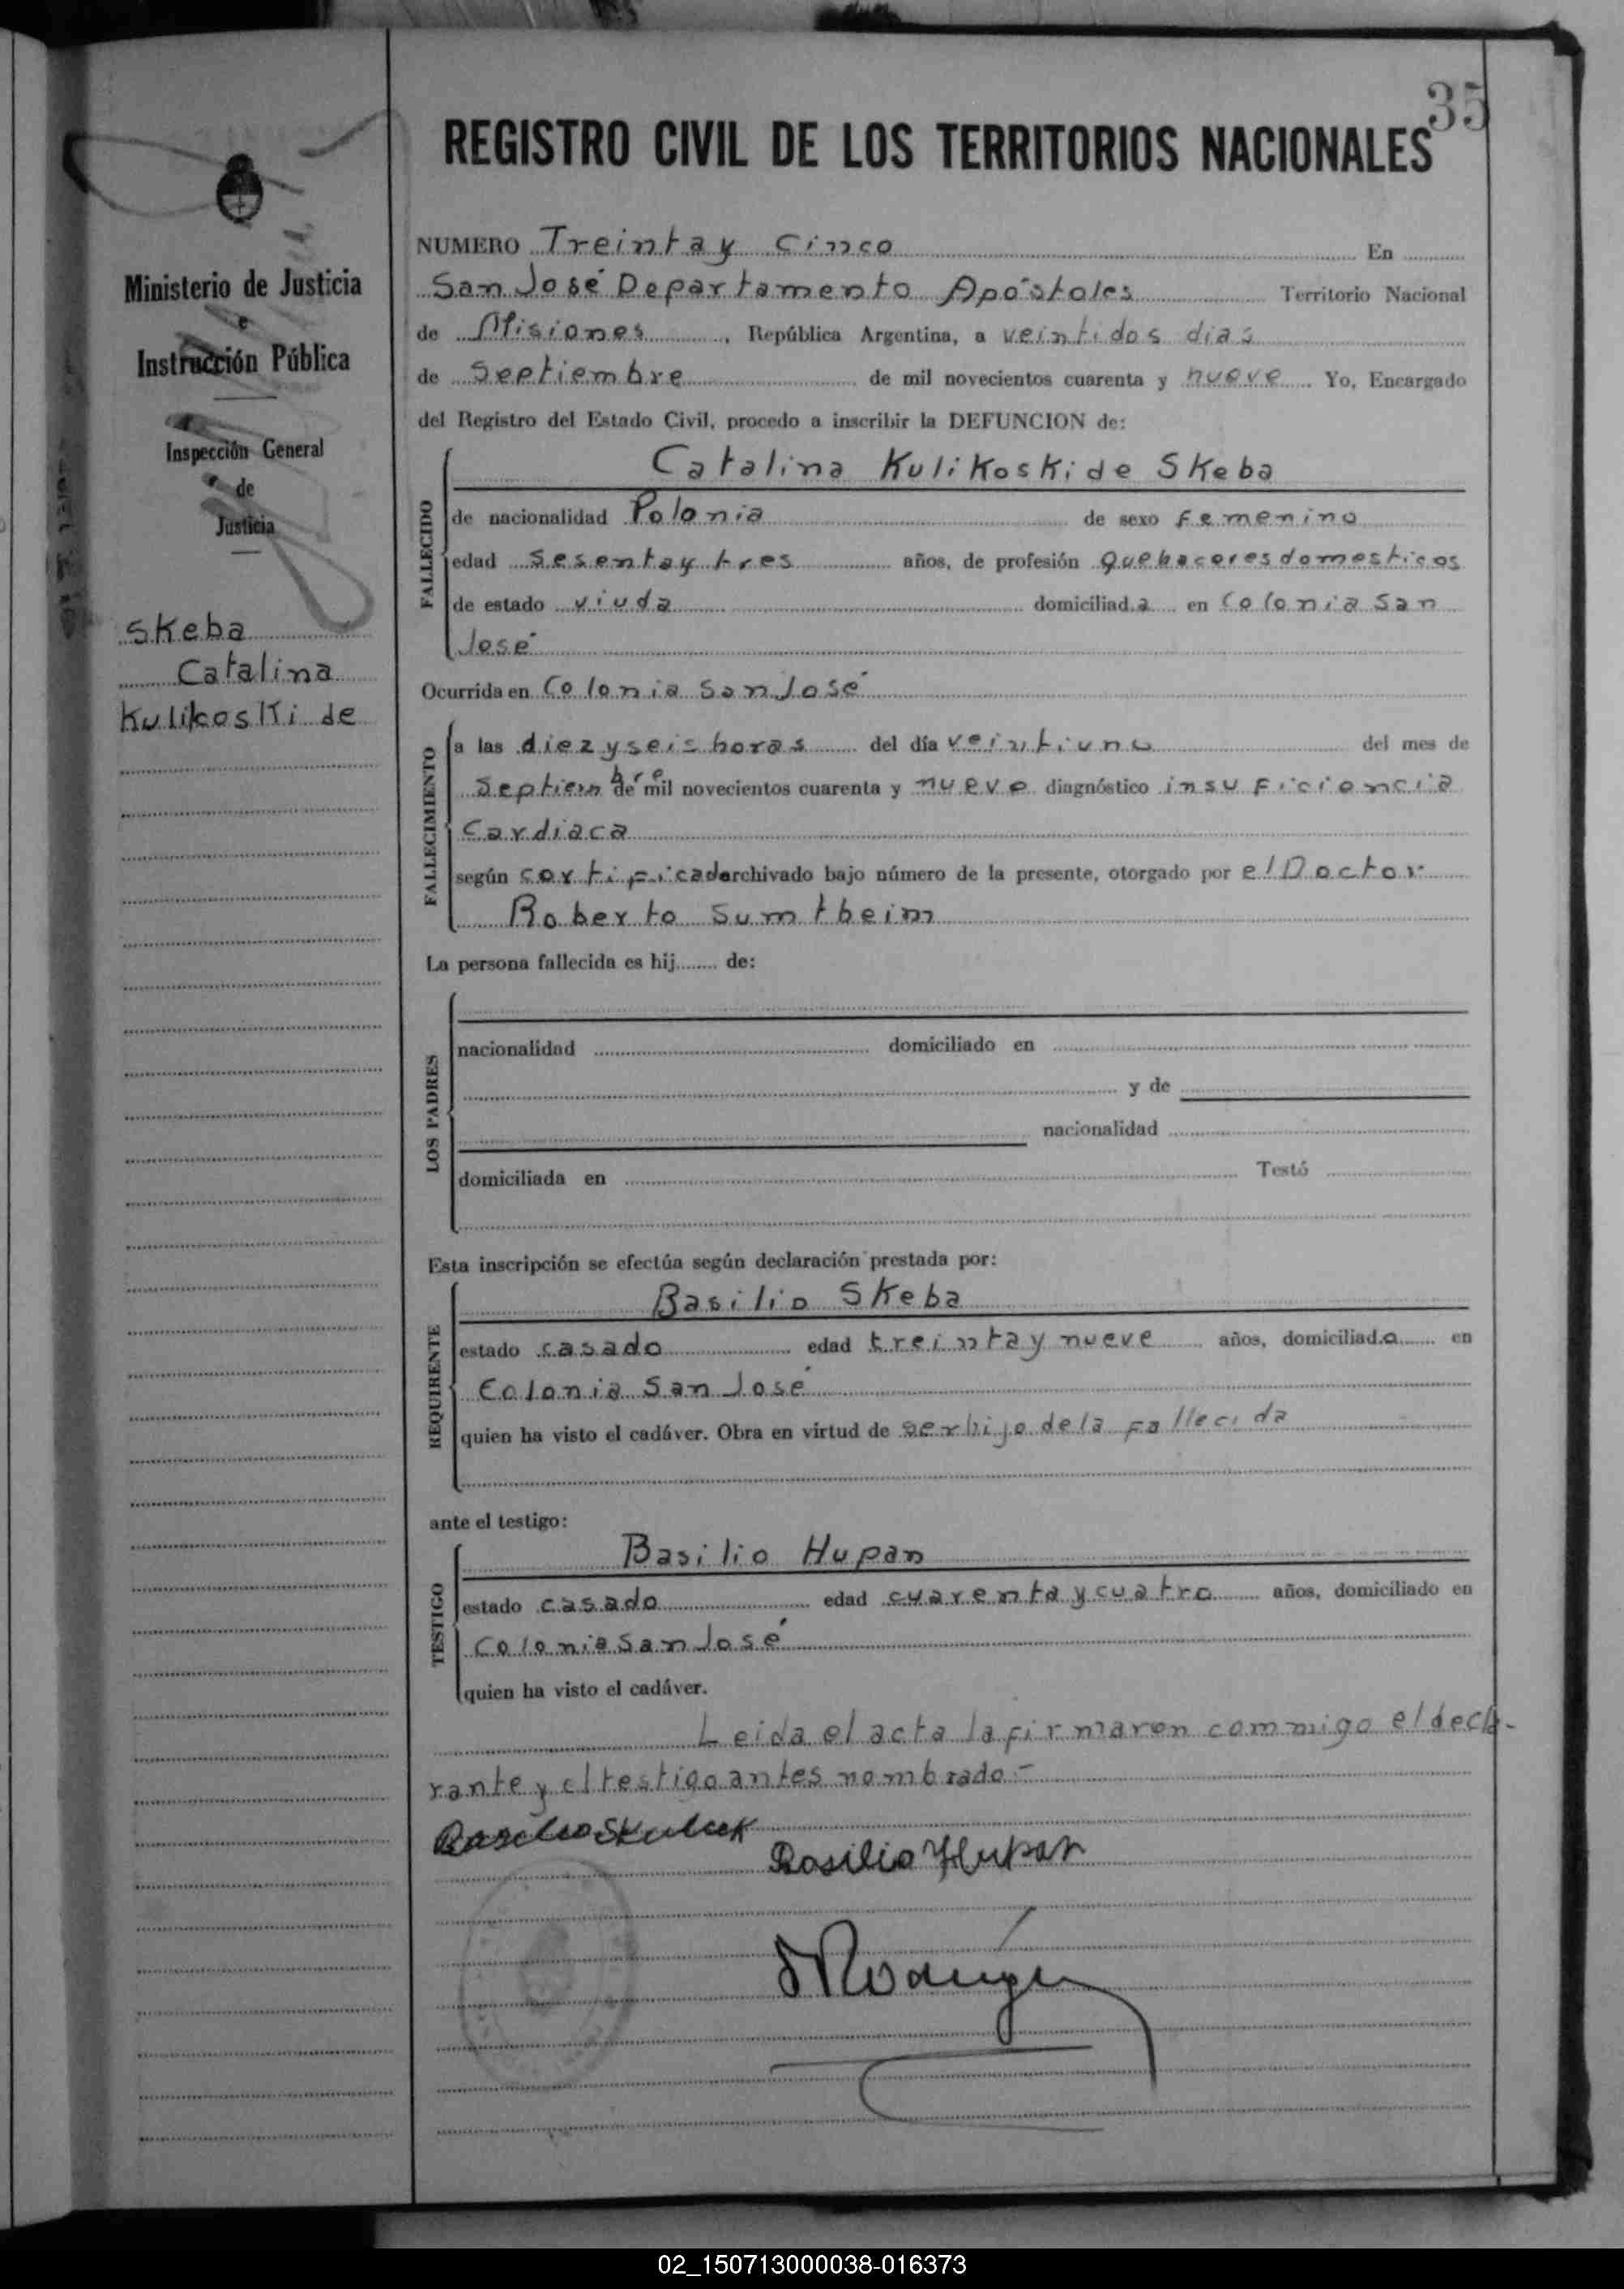 35
REGISTRO CIVIL DE LOS TERRITORIOS NACIONALES
Ministerio de Justicia
e
Instrucción Pública
Inspección General
de
Justicia
Skeba
Catalina
Kulikoski de
NUMERO Treinta y Cinco En
San José Departamento Apóstoles Territorio Nacional
de Misiones, República Argentina, a veintidos dias
de Septiembre de mil novecientos cuarenta y nueve Yo, Encargado
del Registro del Estado Civil, procedo a inscribir la DEFUNCION de:
FALLECIDO
Catalina Kulikoski de Skeba
de nacionalidad Polonia de sexo Femenino
edad Sesenta y tres años, de profesión Quehaceres domesticos
de estado viuda domiciliada en Colonia San
José
Ocurrida en Colonia San José
FALLECIMIENTO
a las diez y seis horas del día veintiuno del mes de
Septiembre de mil novecientos cuarenta y nueve diagnóstico insuficiencia
Cardiaca
según certificado archivado bajo número de la presente, otorgado por el Doctor
Roberto Sumtheim
La persona fallecida es hij de:
LOS PADRES
nacionalidad domiciliado en
y de
nacionalidad
domiciliada en Testó
Esta inscripción se efectúa según declaración prestada por:
REQUIRENTE
Basilio Skeba
estado casado edad treinta y nueve años, domiciliado en
Colonia San José
quien ha visto el cadáver. Obra en virtud de ser hijo de la fallecida
ante el testigo:
TESTIGO
Basilio Hupan
estado casado edad cuarenta y cuatro años, domiciliado en
Colonia San José
quien ha visto el cadáver.
Leida el acta la firmaron commigo el decla-
rante y el testigo antes nombrado.-
Basilio
Basilio Hupan
02_150713000038-016373